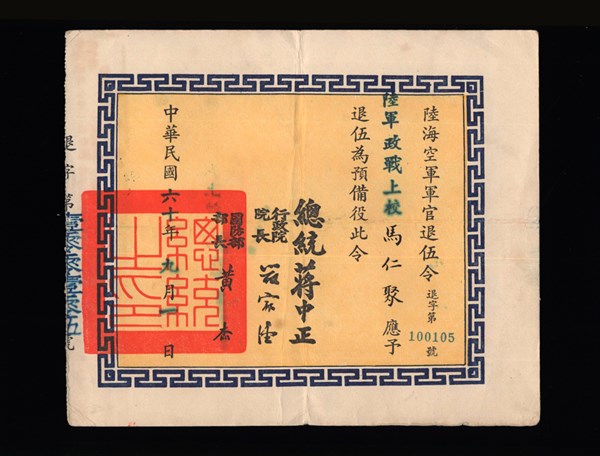 陸海空軍軍官退伍令
退字第100105號
陸軍政戰上校 馬仁聚 應予
退伍為預備役此令
總統蔣中正
行政院
院長
國防部
部長 黃杰
中華民國六十年九月一日
總統之印
退字第壹零零壹零五號